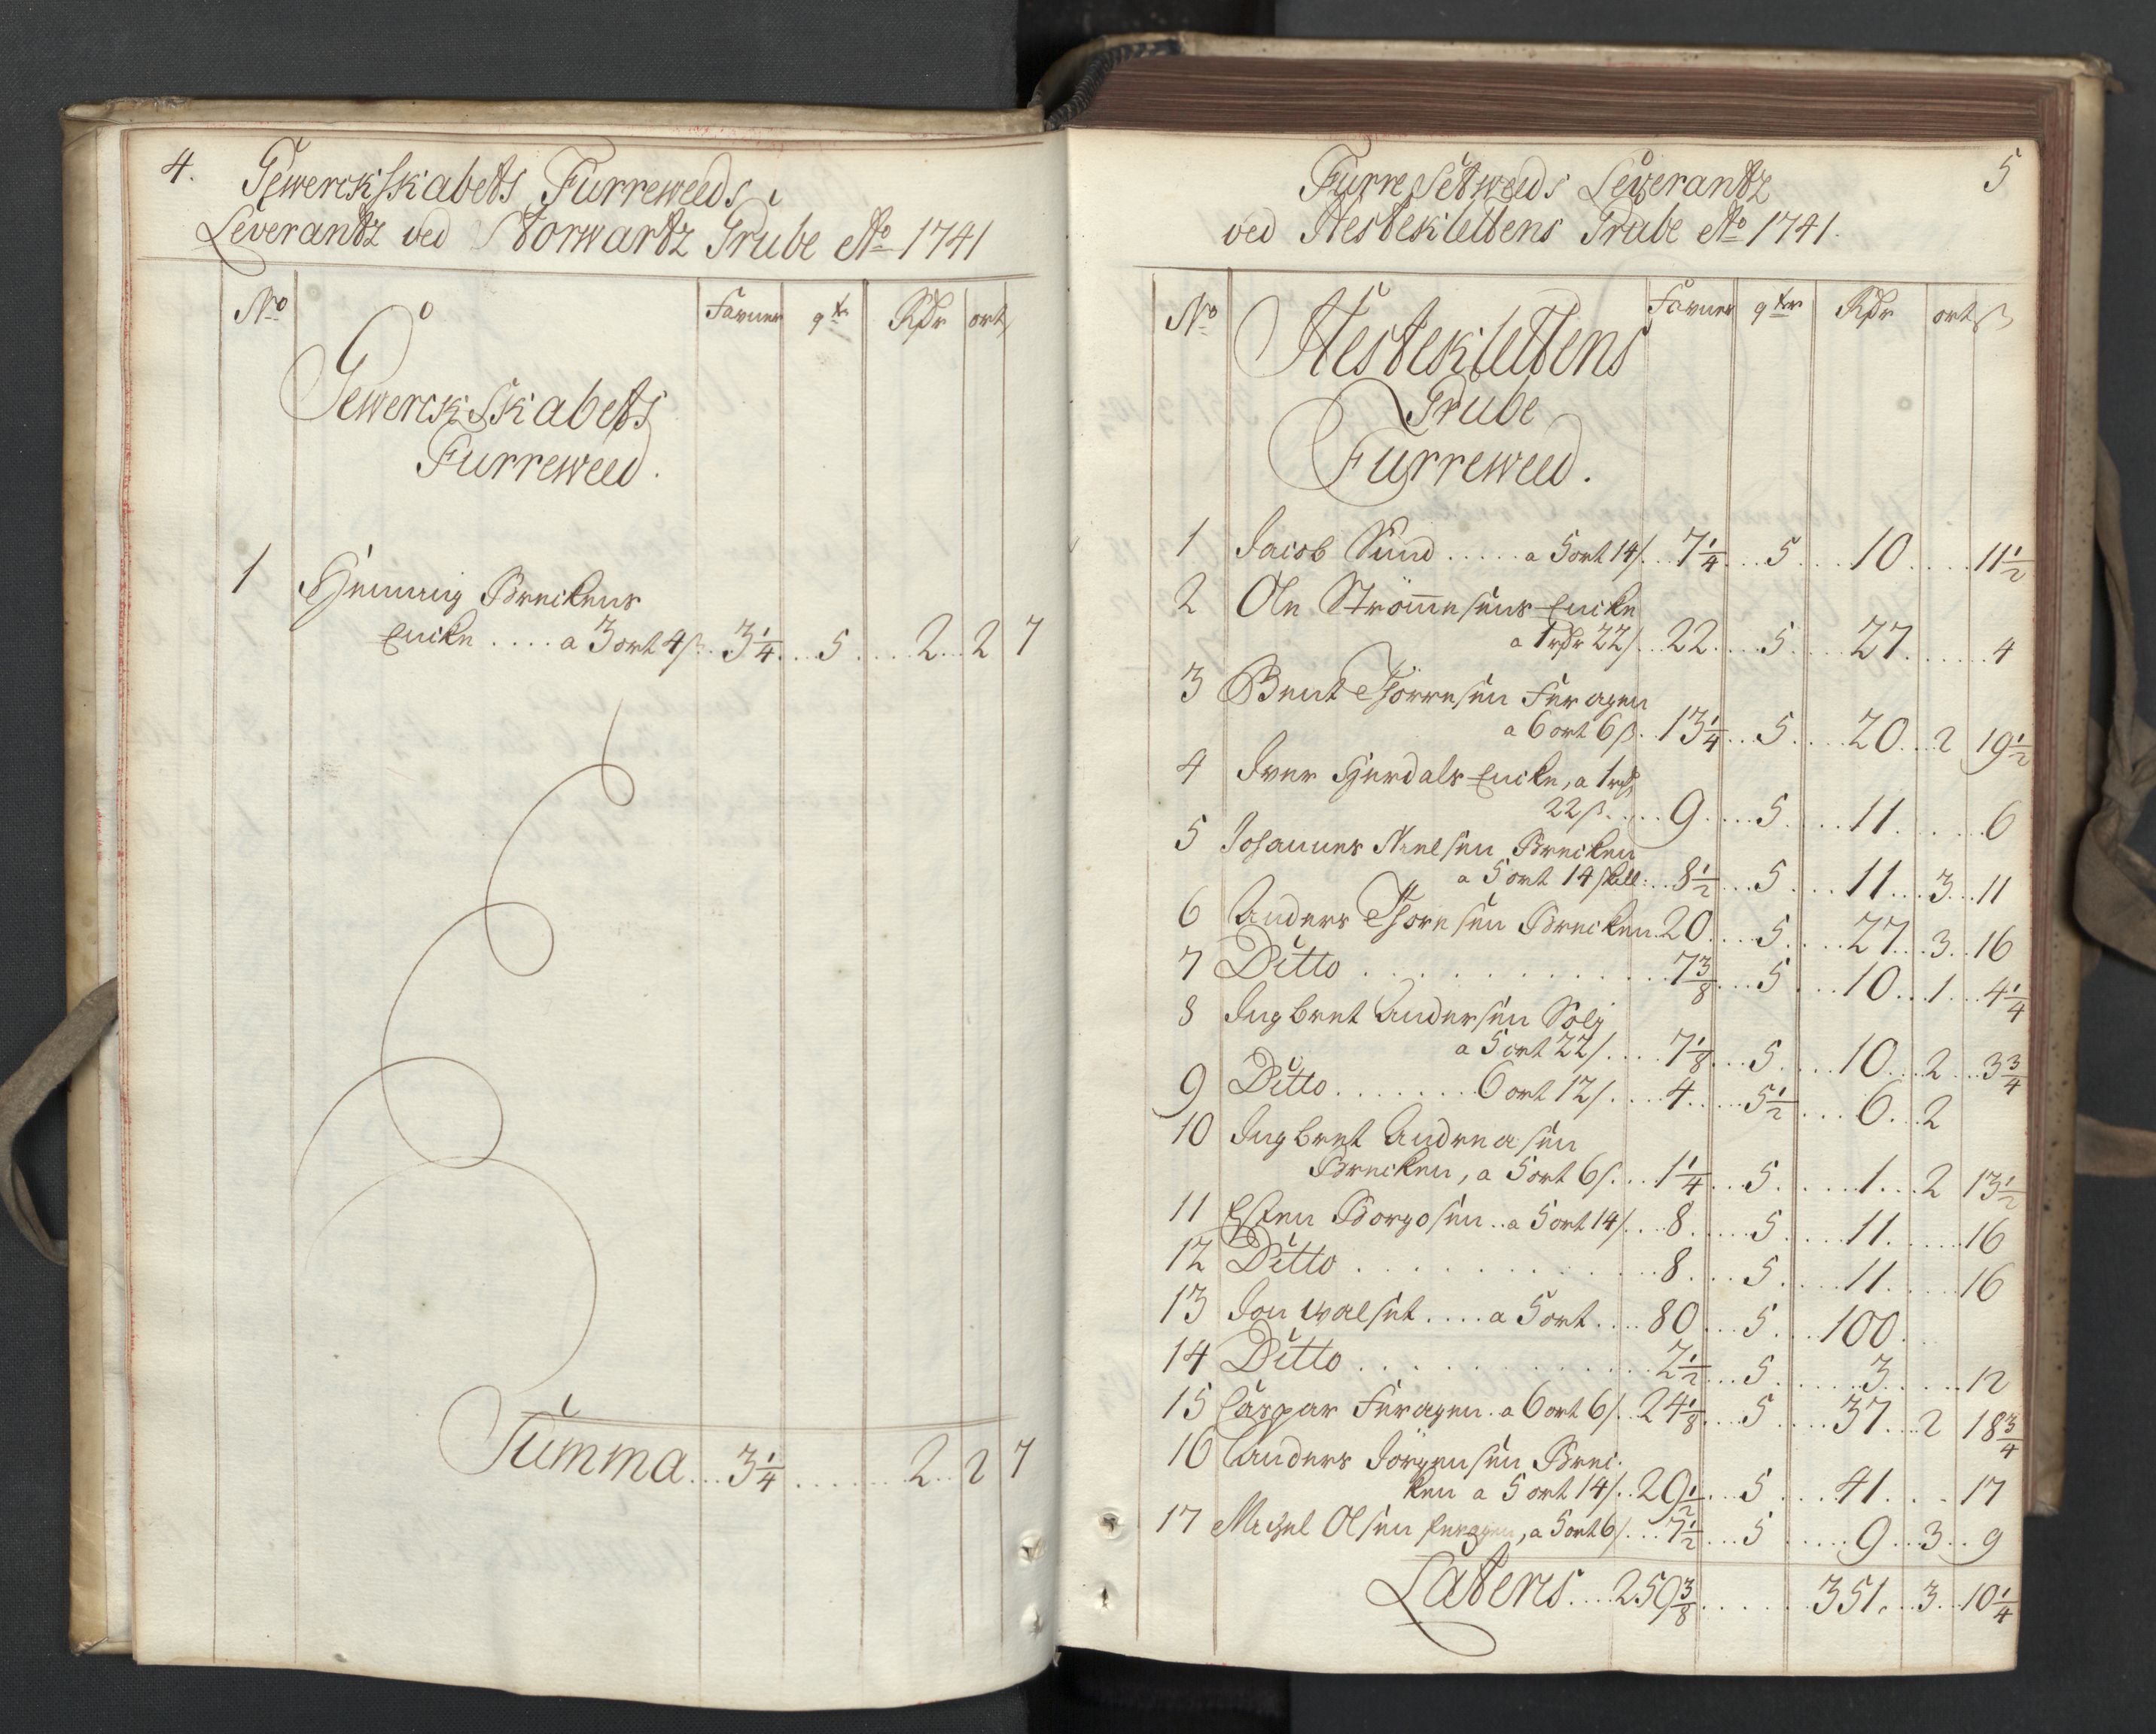 4.
Gewerckskabets Furreweeds
Leverantz ved Storwartz Grube Ao 1741
No Favner qtr Rdr ort
Gewerckskabets
Furreweed.
1 Henning Breckens
Encke .... a 3 ort 4 ß .. 3 1/4 ... 5 .... 2 .. 2 7
Summa ... 3 1/4 ....... 2 .. 2 7
5
Furre Setweeds Leverantz
ved Hestekilettens Grube Ao 1741.
No Favner qter Rdr ort ß
Hestekilettens
Grube
Furreweed.
1 Jacob Sund ..... a 5 ort 14 ß .. 7 1/4 ... 5 ... 10 .... 11 1/2
2 Ole Strömmesens Encke
a 1 rdr 22 ß .. 22 .... 5 .... 27 ...... 4
3 Bent Thörresen Feragen
a 6 ort 6 ß .. 13 1/4 ... 5 .... 20 .. 2 19 1/2
4 Iver Hierdals Encke, a 1 rdr
22 ß ..... 9 .... 5 .... 11 ...... 6
5 Johannes Nielsen Brecken
a 5 ort 14 skill: .. 8 1/2 ... 5 .... 11 ... 3 .. 11
6 Anders Thoresen Brecken . 20 .... 5 .... 27 ... 3 .. 16
7 Ditto ............ 7 3/8 ... 5 ... 10 .. 1 ... 4 1/4
8 Ingbret Andersen Solj
a 5 ort 22 ß .... 7 1/8 ... 5 .... 10 ... 2 ... 3 3/4
9 Ditto ....... 6 ort 12 ß .... 4 ..... 5 1/2 .... 6 .. 2
10 Ingbret Andreasen
Brecken, a 5 ort 6 ß ... 1 1/4 ... 5 ..... 1 ... 2 13 1/2
11 Esten Borgosen .. a 5 ort 14 ß ... 8 ..... 5 .... 11 ..... 16
12 Ditto ........... 8 .... 5 .... 11 .... 16
13 Jon Walset .... a 5 ort .... 80 ... 5 ... 100 ...
14 Ditto ............ 2 1/2 ... 5 ..... 3 .... 12
15 Caspar Feragen . a 6 ort 6 ß .. 24 1/8 ... 5 .... 37 ... 2 18 3/4
16 Anders Jörgensen Brec-
ken a 5 ort 14 ß .. 29 1/2 ... 5 .... 41 ... 17
17 Michel Olsen Feragen, a 5 ort 6 ß ... 7 1/2 ... 5 ..... 9 ... 3 .. 9
Lateris .... 259 3/8 ....... 351 ... 3 .. 10 1/4